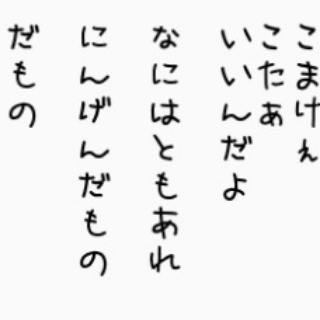 こまけぇ
こたぁ
いいんだよ
なにはともあれ
にんげんだもの
だもの